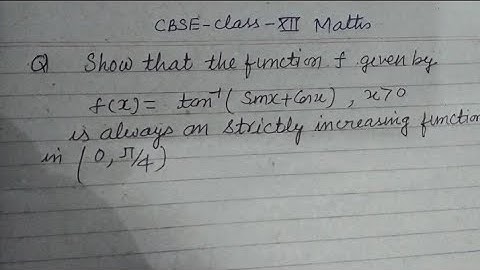 CBSE-Class-XII Maths
Q Show that the function f given by
f(x) = tan⁻¹(Sinx+Cosx), x>0
is always an strictly increasing function
in (0, π/4)